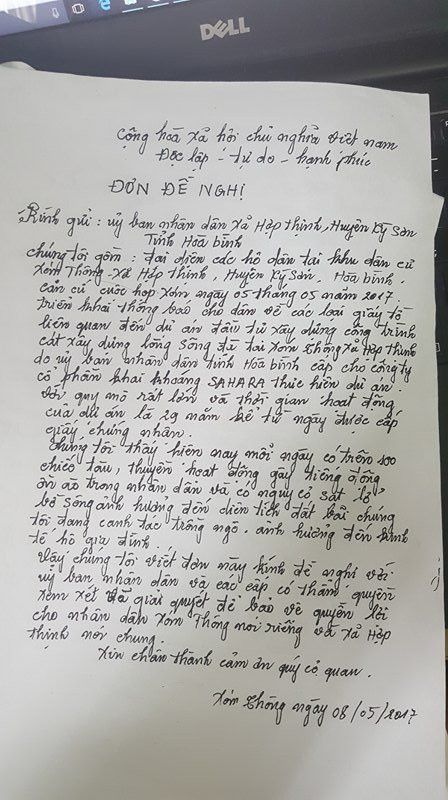 DELL
Cộng hoà xã hội chủ nghĩa việt nam
Độc lập - tự do - hạnh phúc
ĐƠN ĐỀ NGHỊ
Kính gửi: uỷ ban nhân dân xã Hợp thịnh, Huyện Kỳ Sơn
Tỉnh Hoà bình
chúng tôi gồm: đại diện các hộ dân tại khu dân cư
xóm Thông xã Hợp thịnh, Huyện Kỳ Sơn, Hoà bình.
căn cứ cuộc họp xóm ngày 05 tháng 05 năm 2017.
triển khai thông báo cho dân về các loại giấy tờ
liên quan đến dự án đầu tư xây dựng công trình
cát xây dựng lòng sông đà tại xóm thông xã Hợp thịnh
do uỷ ban nhân dân tỉnh Hoà bình cấp cho công ty
cổ phần khai khoáng SAHARA thực hiện dự án
với quy mô rất lớn và thời gian hoạt động
của dự án là 29 năm kể từ ngày được cấp
giấy chứng nhận.
chúng tôi thấy hiện nay mỗi ngày có trên 100
chiếc tàu, thuyền hoạt động gây tiếng động
ồn ào trong nhân dân và có nguy cơ sạt lở
bờ sông ảnh hưởng đến diện tích đất bãi chúng
tôi đang canh tác trồng ngô. ảnh hưởng đến kinh
tế hộ gia đình.
Vậy chúng tôi viết đơn này kính đề nghị với
uỷ ban nhân dân và các cấp có thẩm quyền
xem xét và giải quyết để bảo vệ quyền lợi
cho nhân dân xóm Thông nói riêng và xã Hợp
thịnh nói chung.
Xin chân thành cảm ơn quý cơ quan.
Xóm thông ngày 08/05/2017